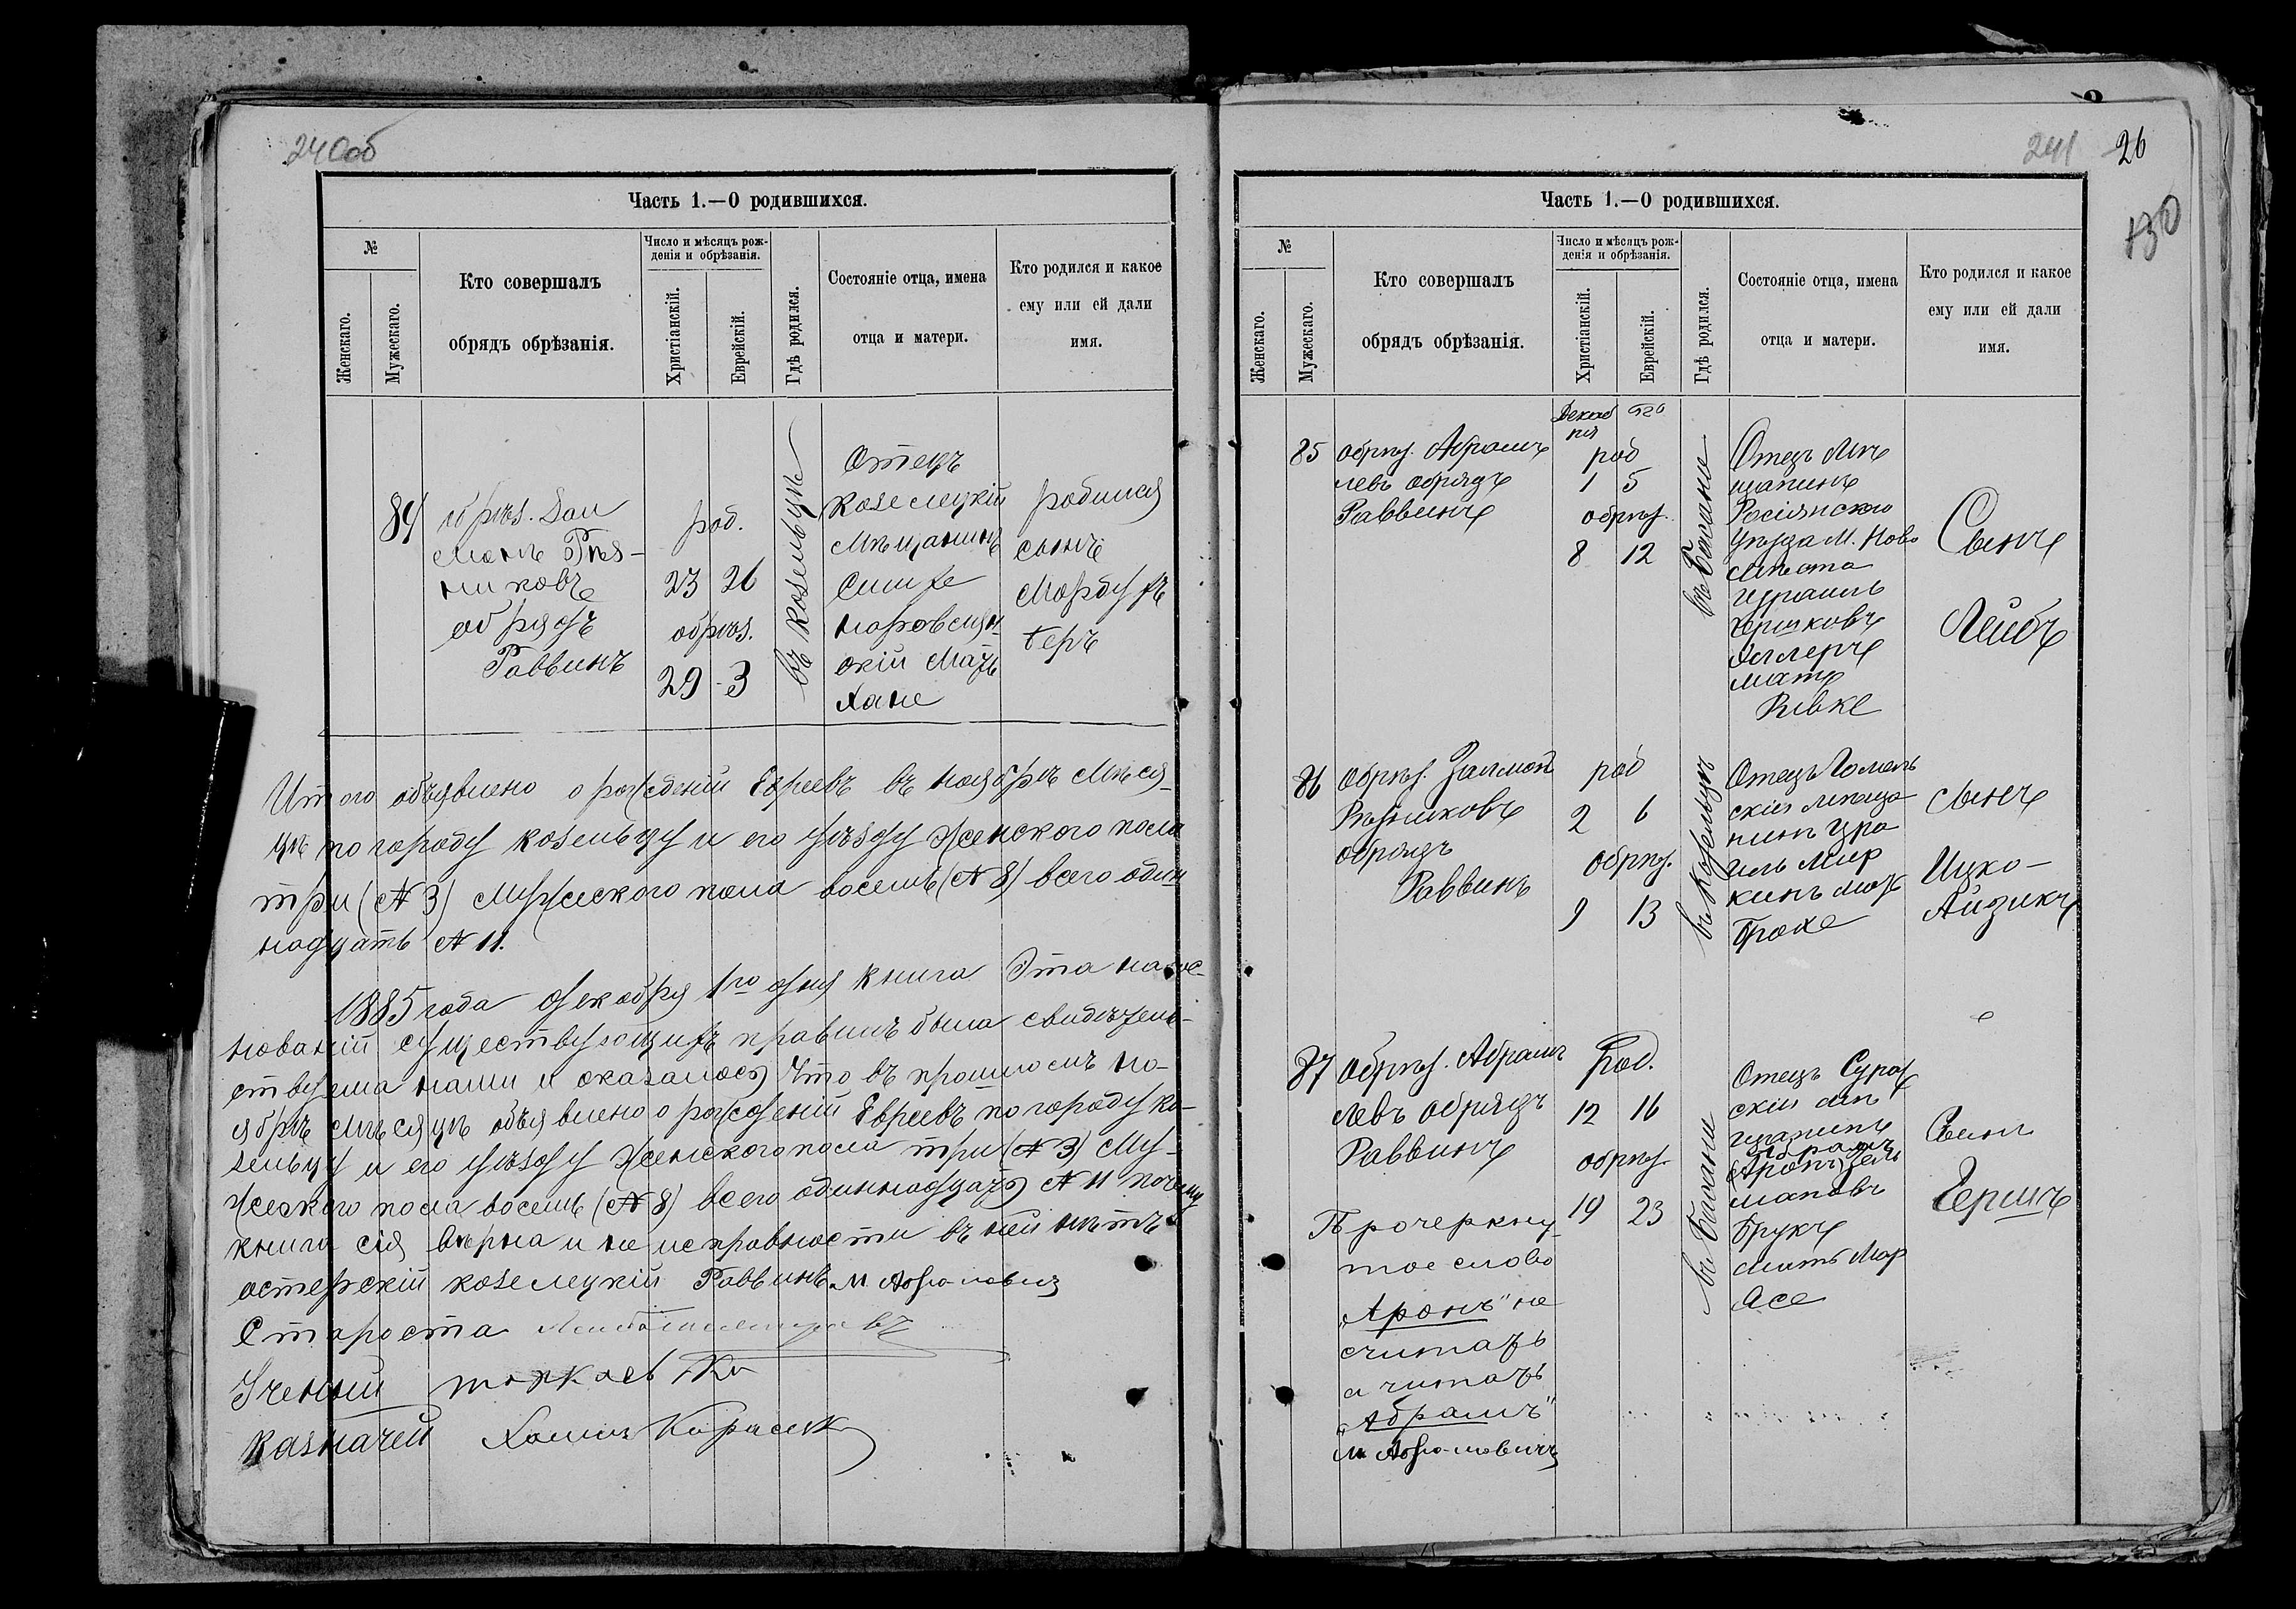 240об
Часть 1.—О родившихся.
№
Женскаго.
Мужескаго.
Кто совершалъ
обрядъ обрѣзанія.
Число и мѣсяцъ рож-
денія и обрѣзанія.
Христіанскій.
Еврейскій.
Гдѣ родился.
Состояніе отца, имена
отца и матери.
Кто родился и какое
ему или ей дали
имя.
84
обрѣз. Зал
манъ Рѣз-
никовъ
обрядъ
Раввинъ
род.
23 26
обрѣз.
29 3
въ Козельцѣ
Отецъ
Козелецкій
Мѣщанинъ
Симхе
скій Мать
Хане
родился
сынъ
Мордух
Беръ
Итого объявлено о рожденій Евреевъ въ ноябрѣ Мѣся-
цѣ по городу Козельцу и его уѣзду Женского пола
три (№ 3) Мужеского пола восемь (№ 8) всего один
надцать № 11.
1885 года декабря 1го дня книга Эта на ос-
нованій существующихъ правилъ была свидѣтель-
ствуема нами и оказалось Что въ прошломъ но-
ябрѣ Мѣсяцѣ объявлено о рожденій Евреевъ по городу Ко-
зельцу и его уѣзду Женского пола три (№ 3) Му-
жеского пола восемь (№ 8) всего одиннадцать № 11 почему
книга сія вѣрна и неисправности въ ней нѣтъ
остерскій козелецкій Раввинъ М Абрамовичъ
Староста
Ученый
Казначей Хаимъ Карасик
241 26
130
Часть 1.—О родившихся.
№
Женскаго.
Мужескаго.
Кто совершалъ
обрядъ обрѣзанія.
Число и мѣсяцъ рож-
денія и обрѣзанія.
Христіанскій.
Еврейскій.
Гдѣ родился.
Состояніе отца, имена
отца и матери.
Кто родился и какое
ему или ей дали
имя.
Декаб
ря
85
обрѣз. Абрамъ
левъ обрядъ
Раввинъ
род
1 5
обрѣз.
8 12
въ Басани
Отецъ Мѣ
щанинъ
Росіянского
Уѣзда М. Ново
мѣста
Израиль
Гершковъ
мать
Ривке
Сынъ
Лейбъ
86
обрѣз. Залман
Рѣзниковъ
обрядъ
Раввинъ
род
2 6
обрѣз.
9 13
въ Козельцѣ
Отецъ Гомель
скій мѣща
нинъ Изра
иль Мир
кинъ мат
Брохе
сынъ
Ицко-
Айзикъ
87
обрѣз. Абрамъ
левъ обрядъ
Раввинъ
Род.
12 16
обрѣз.
19 23
въ Басани
Отецъ Сураж
скій мѣ
щанинъ
Абрамъ
(Аронъ) Зель
мановъ
Брукъ
мать Мар
Асе
Сынъ
Гершъ
Прочеркну-
тое слово
„Аронъ" не
считать
а читать
„Абрамъ"
М Абрамовичъ